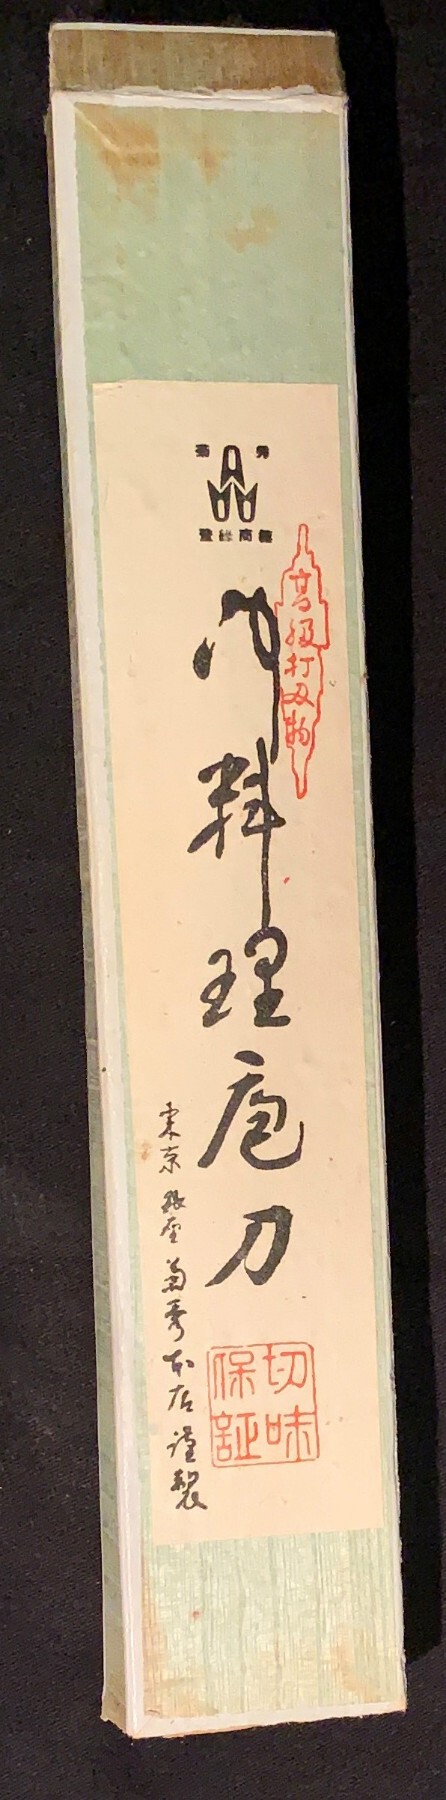 菊秀
登録商標
高級打刃物
御料理庖刀
東京銀座菊秀本店謹製
切味
保証